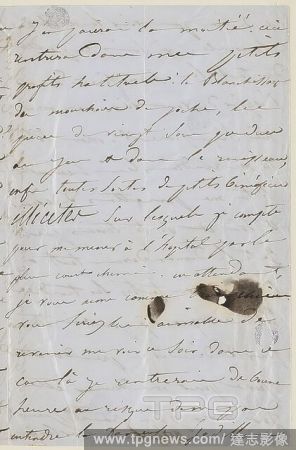 j'en aurai la moitié. ceci
rentrera dans mes petits
profits habituels: le blanchissage
du mouchoir de poche, les
pièces de vingt sous perdues
au jeu & dans le ruisseau,
enfin toutes sortes de petits bénéfices
illicites sur lesquels je compte
pour me mener à l'hôpital par le
plus court chemin. en attendant,
je vous aime comme
vous seriez bien aimable de
revenir me voir ce soir, dans ce
cas là je rentrerai de bonne
heure au risque de ne pas
entendre la
TPG
www.tpgnews.com / 達志影像